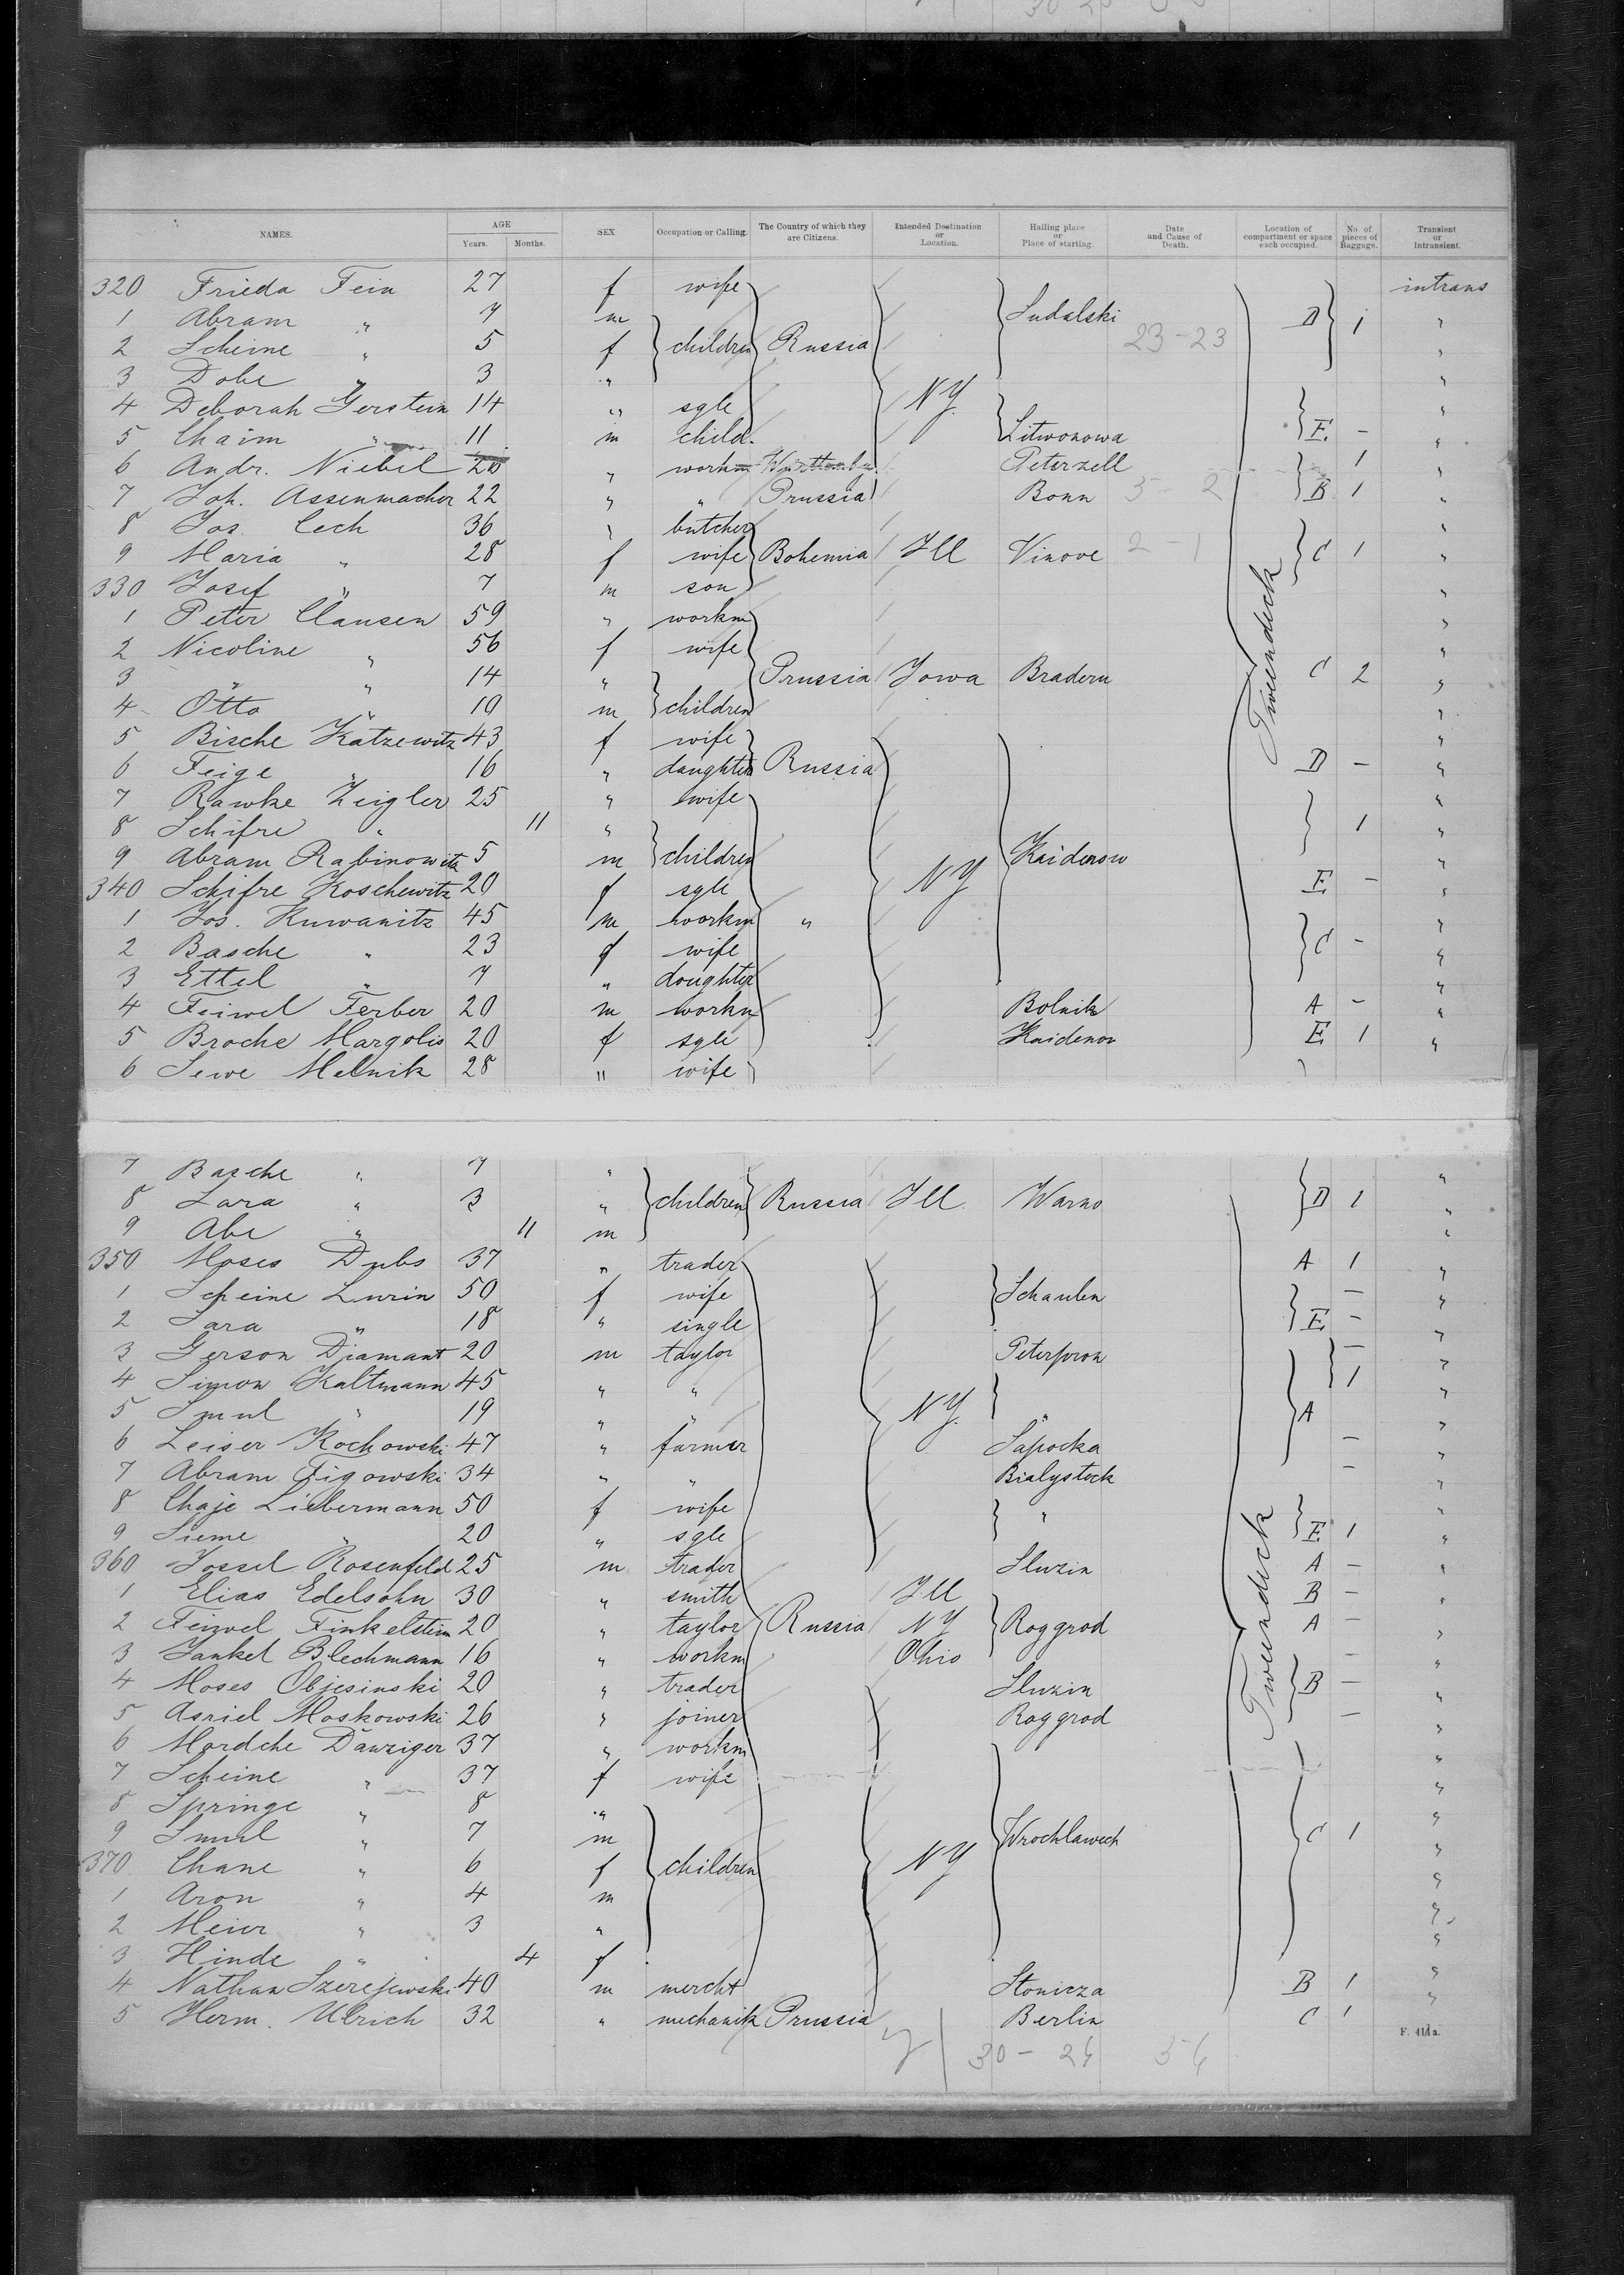 NAMES. AGE Years. Months. SEX Occupation or Calling. The Country of which they are Citizens. Intended Destination or Location. Hailing place or Place of starting. Date and Cause of Death. Location of compartment or space each occupied. No. of pieces of Baggage. Transient or Intransient.
320 Frieda Fein 27 f wife intrans
1 Abram " 7 m Sudalski D 1 "
2 Scheine " 5 f children Russia 23-23 "
3 Dobe " 3 " "
4 Deborah Gerstein 14 " sgle NY "
5 Chaim " 11 m child. Litwonowa E - "
6 Andr. Niebel 26 " workm Württembg. Peterzell 1 "
7 Joh. Assenmacher 22 " " Prussia Bonn B 1 "
8 Jos. Cech 36 " butcher "
9 Maria " 28 f wife Bohemia Ill Vinove 2-1 C 1 "
330 Josef " 7 m son "
1 Peter Clausen 59 " workm "
2 Nicoline " 56 f wife "
3 " " 14 " Prussia Iowa Braderu C 2 "
4 Otto " 10 m children "
5 Bische Katzewitz 43 f wife "
6 Feige " 16 " daughter Russia D - "
7 Rawke Zeigler 25 " wife "
8 Schifre " 11 " 1 "
9 Abram Rabinowitz 5 m children Kaidenow "
340 Schifre Koschewitz 20 f sgle NY E - "
1 Jos. Kuwanitz 45 m workm " "
2 Basche " 23 f wife C - "
3 Ettel " 7 " doughter "
4 Feiwel Ferber 20 m workm Bolnik A - "
5 Broche Margolis 20 f sgle Kaidenow E 1 "
6 Sewe Melnik 28 " wife
Tweendeck
7 Basche " 7 " "
8 Sara " 3 " children Russia Ill. Warno D 1 "
9 Abe " 11 m "
350 Moses Dubs 37 " trader A 1 "
1 Scheine Lurin 50 f wife Schaulen - "
2 Sara " 18 " single E - "
3 Gerson Diamant 20 m taylor - "
4 Simon Kaltmann 45 " " 1 "
5 Smul " 19 " " NY. " A "
6 Leiser Kochowski 47 " farmer Sapocka - "
7 Abram Figowski 34 " " Bialystock - "
8 Chaje Liebermann 50 f wife " "
9 Sieme " 20 " sgle E 1 "
360 Jossel Rosenfeld 25 m trader Sluzin A - "
1 Elias Edelsohn 30 " smith Ill B - "
2 Feiwel Finkelstein 20 " taylor Russia NY Roggrod A - "
3 Jankel Blechmann 16 " workm Ohio - "
4 Moses Objesinski 20 " trader Sluzin B - "
5 Asriel Moskowski 26 " joiner Roggrod - "
6 Mordche Danziger 37 " workm "
7 Scheine " 37 f wife "
8 Springe " 8 " "
9 Smul " 7 m Wrochlawech C 1 "
370 Chane " 6 f children NY "
1 Aron " 4 m "
2 Meier " 3 " "
3 Hinde " 4 f "
4 Nathan Szerejewski 40 m mercht Stonicza B 1 "
5 Herm. Ulrich 32 " mechanik Prussia Berlin C 1 "
Tweendeck
F. 411a.
30-24